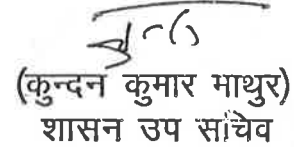 (कुन्दन कुमार माथुर)
शासन उप सचिव